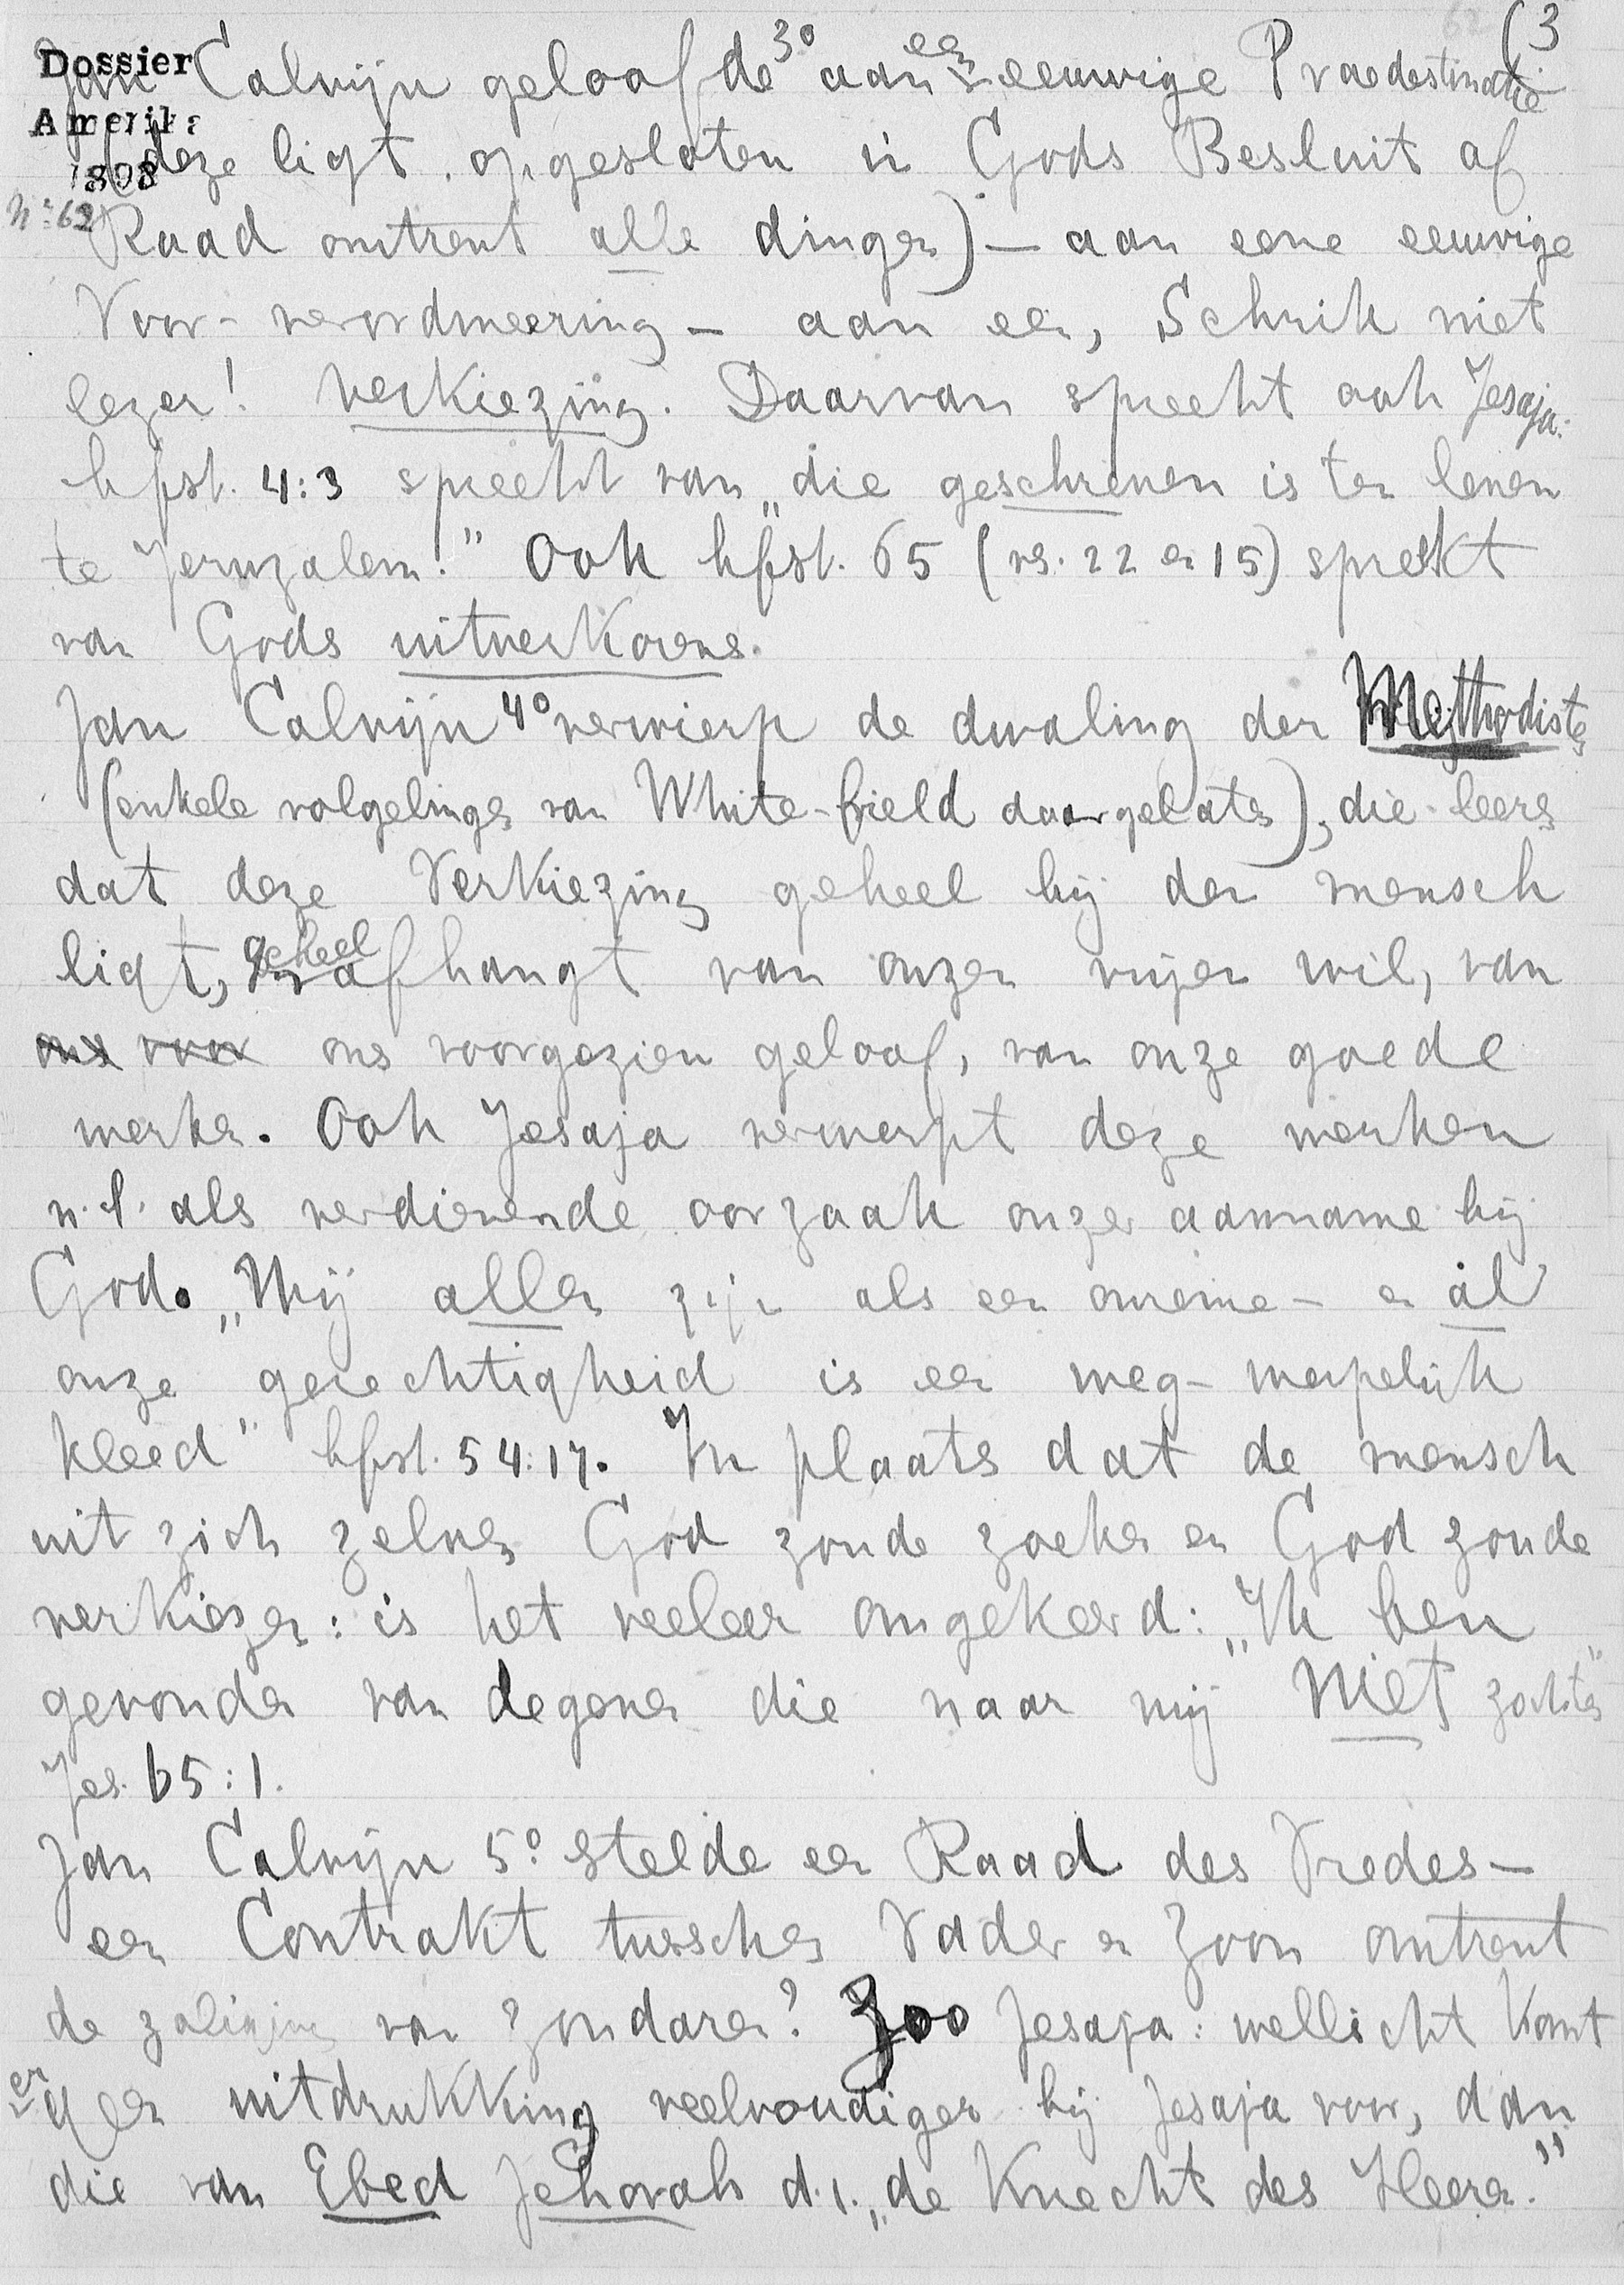 62 (3
Dossier
Amerika
1898
No 62
Jan Calvijn geloofde 3o aan een eeuwige Praedestinatie
(deze ligt opgesloten in Gods Besluit of
Raad omtrent alle dingen) — aan eene eeuwige
Voor-verordineering — aan een, Schrik niet
lezer! verkiezing. Daarvan spreekt ook Jesaja.
hfst. 4:3 spreekt van „die geschreven is ten leven
te Jeruzalem!" Ook hfst. 65 (vs. 22 en 15) spreekt
van Gods uitverkorene.
Jan Calvijn 4o verwierp de dwaling der Methodisten
(enkele volgelingen van White-field daargelaten), die leeren
dat deze Verkiezing geheel bij den mensch
ligt, geheel afhangt van onzen vrijen wil, van
ons voor ons voorgezien geloof, van onze goede
werken. Ook Jesaja verwerpt deze werken
n.l. als verdienende oorzaak onzer aanname bij
God. „Wij allen zijn als een onreine — en al
onze gerechtigheid is een weg-werpelijk
kleed" hfst. 54:17. In plaats dat de mensch
uit zich zelven God zoude zoeken en God zoude
verkiezen: is het veeleer omgekeerd: „Ik ben
gevonden van degenen die naar mij niet zochten"
Jes. 65:1.
Jan Calvijn 5o stelde een Raad des Vredes —
een Contrakt tusschen Vader en Zoon omtrent
de zaliging van zondaren? Zoo Jesaja: wellicht komt
er geen uitdrukking veelvoudiger bij Jesaja voor, dan
die van Ebed Jehovah d.i. „de Knecht des Heeren."